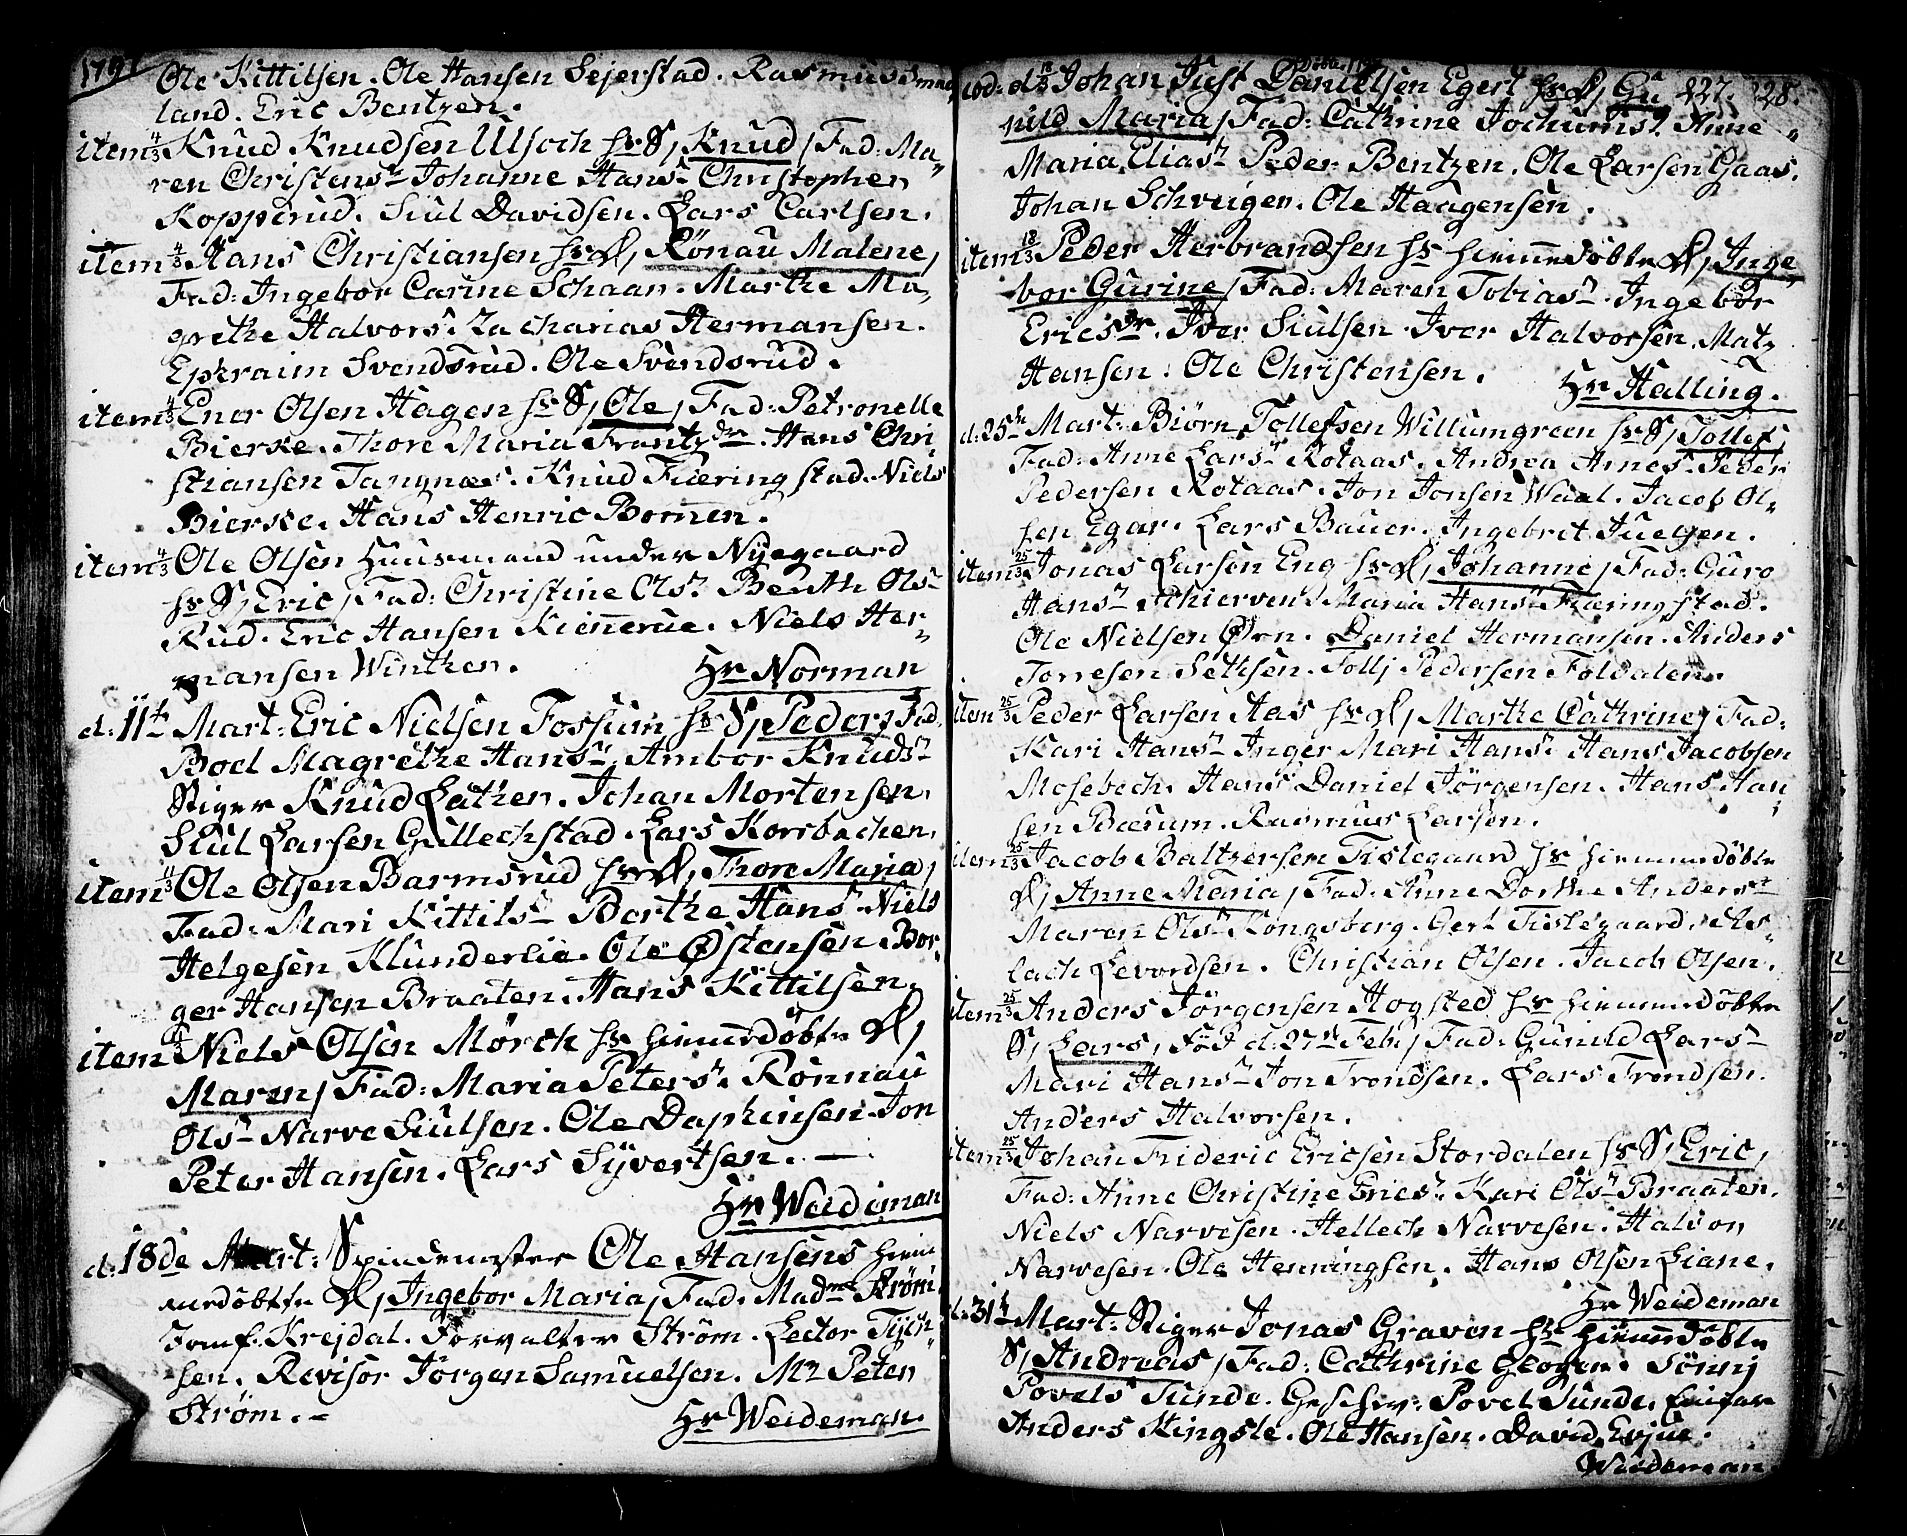 1791
Ole Kittilsen. Ole Hansen Sejerstad. Rasmus Smed
land. Eric Bentzen.
item 4/3 Knud Knudsen Ulsoch hs S, Knud, Fad: Ma-
ren Christensr Johanne Hansr Christopher
Kopperud. Siul Davidsen. Lars Carlsen.
item 4/3 Hans Christiansen hs D, Rönau Malene,
Fad: Ingebor Carine Schaan. Marthe Ma-
grethe Halvorsr. Zacharias Hermansen.
Ephraim Svendsrud. Ole Svendsrud.
item 4/3 Ener Olsen Hagen hs S, Ole, Fad: Petronelle
Bierke. Thore Maria Frantzdr. Hans Chri
stiansen Tangnæs. Knud Fiæringstad. Niels
Bierke. Hans Henric Bomen.
item 4/3 Ole Olsen Huusmand under Nyegaard
hs S, Eric, Fad: Christine Olsr. Berith Olsr
Rud. Eric Hansen Kiennerue. Niels Her-
mansen Winther.
Hr Norman
d: 11te Mart: Eric Nielsen Fossum hs S, Peder, Fad:
Boel Magrethe Hansr, Ambor Knudsr
Stiger Knud Lather. Johan Mortensen.
Siul Larsen Gullechstad. Lars Korsbechen.
item 11/3 Ole Olsen Barmsrud hs D, Thore Maria,
Fad: Mari Kittilsr Berthe Hansr Niels
Helgesen Klunderlie. Ole Østensen. Bor-
ger Hansen Braaten. Hans Kittilsen.
item Niels Olsen Mörch hs hiemmedöbte D,
Maren, Fad: Maria Petersr. Rönnau
Olsr Narve Siulsen. Ole Daphinsen. Jon
Peter Hansen. Lars Syvertsen. —
Hr Weideman
d: 18de Mart: Spindemester Ole Hansens hiem
medöbte D, Ingebor Maria, Fad: Madme Ström.
Jomf. Krejdal. Forvalter Ström. Lector
sen. Revisor Jörgen Samuelsen. Mr Peter
Ström. –
Hr Weideman.
eod: d: 18/3 Johan Just Danielsen Egert hs D, Gu 227. 228.
nild Maria, Fad: Cathrine Jochumsr. Anne
Maria Eliasr Peder Bentzen. Ole Larsen Gaas.
Johan Schveigen. Ole Haagensen.
item 18/3 Peder Herbrandsen hs hiemmedöbte D, Inge
bor Gurine, Fad: Maren Tobiasr. Ingebor
Ericsdr. Iver Siulsen. Iver Halvorsen. Matz
Hansen. Ole Christensen.
Hr Halling.
d: 25de Mart: Biörn Tollefsen Willumgreen hs S, Tollef,
Fad: Anne Larsr Rotaas. Andrea Arnesr. Peder
Pedersen Rotaas. Jon Jonsen Waal. Jacob Ol-
sen Egar. Lars Bauer. Ingebret Juelsen.
item 25/3 Jonas Larsen Eng hs D, Johanne, Fad: Guro
Hansr Schierven. Maria Hansr Fiæringstad.
Ole Nielsen Ørn. Daniel Hermansen. Anders
Torresen Sethsen. Tolly Pedersen Foldalen.
item 25/3 Peder Larsen Aas hs D, Marthe Cathrine, Fad:
Kari Hansr Inger Mari Hansr. Hans Jacobsen
Mosebech. Hans Daniel Jörgensen. Hans Han-
sen Bærum. Rasmus Larsen.
item 25/3 Jacob Baltzersen Fislegaard hs hiemmedöbte
D, Anne Maria, Fad: Anne Dorthe Andersr
Maren Olsr Kongsberg. Gert Fislegaard. As-
lach Levordsen. Christian Olsen. Jacob Olsen.
item 25/3 Anders Jörgensen Hogsted hs hiemmedöbte
S, Lars, Föd d: 27de Feb:, Fad: Gunild Larsr
Mari Hansr Jon Trondsen. Lars Trondsen.
Anders Halvorsen.
item 25/3 Johan Frideric Ericsen Stordalen hs S, Eric,
Fad: Anne Christine Ericsr. Kari Olsr Braaten.
Niels Narvesen. Hellech Narvesen. Halvor
Narvesen. Ole Henningsen. Hans Olsen Liane.
Hr Weideman
d: 31te Mart: Stiger Jonas Graven hs hiemmedöbte
S, Andreas, Fad: Cathrine Geogine. Sönnj
Povels Sunde. Geschw: Povel Sunde.
Anders Kingsle. Ole Hansen. David Evjue.
Weideman